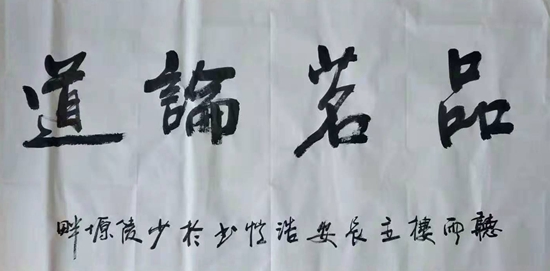 品茗論道
聽雨樓主長安浩性书於少陵塬畔